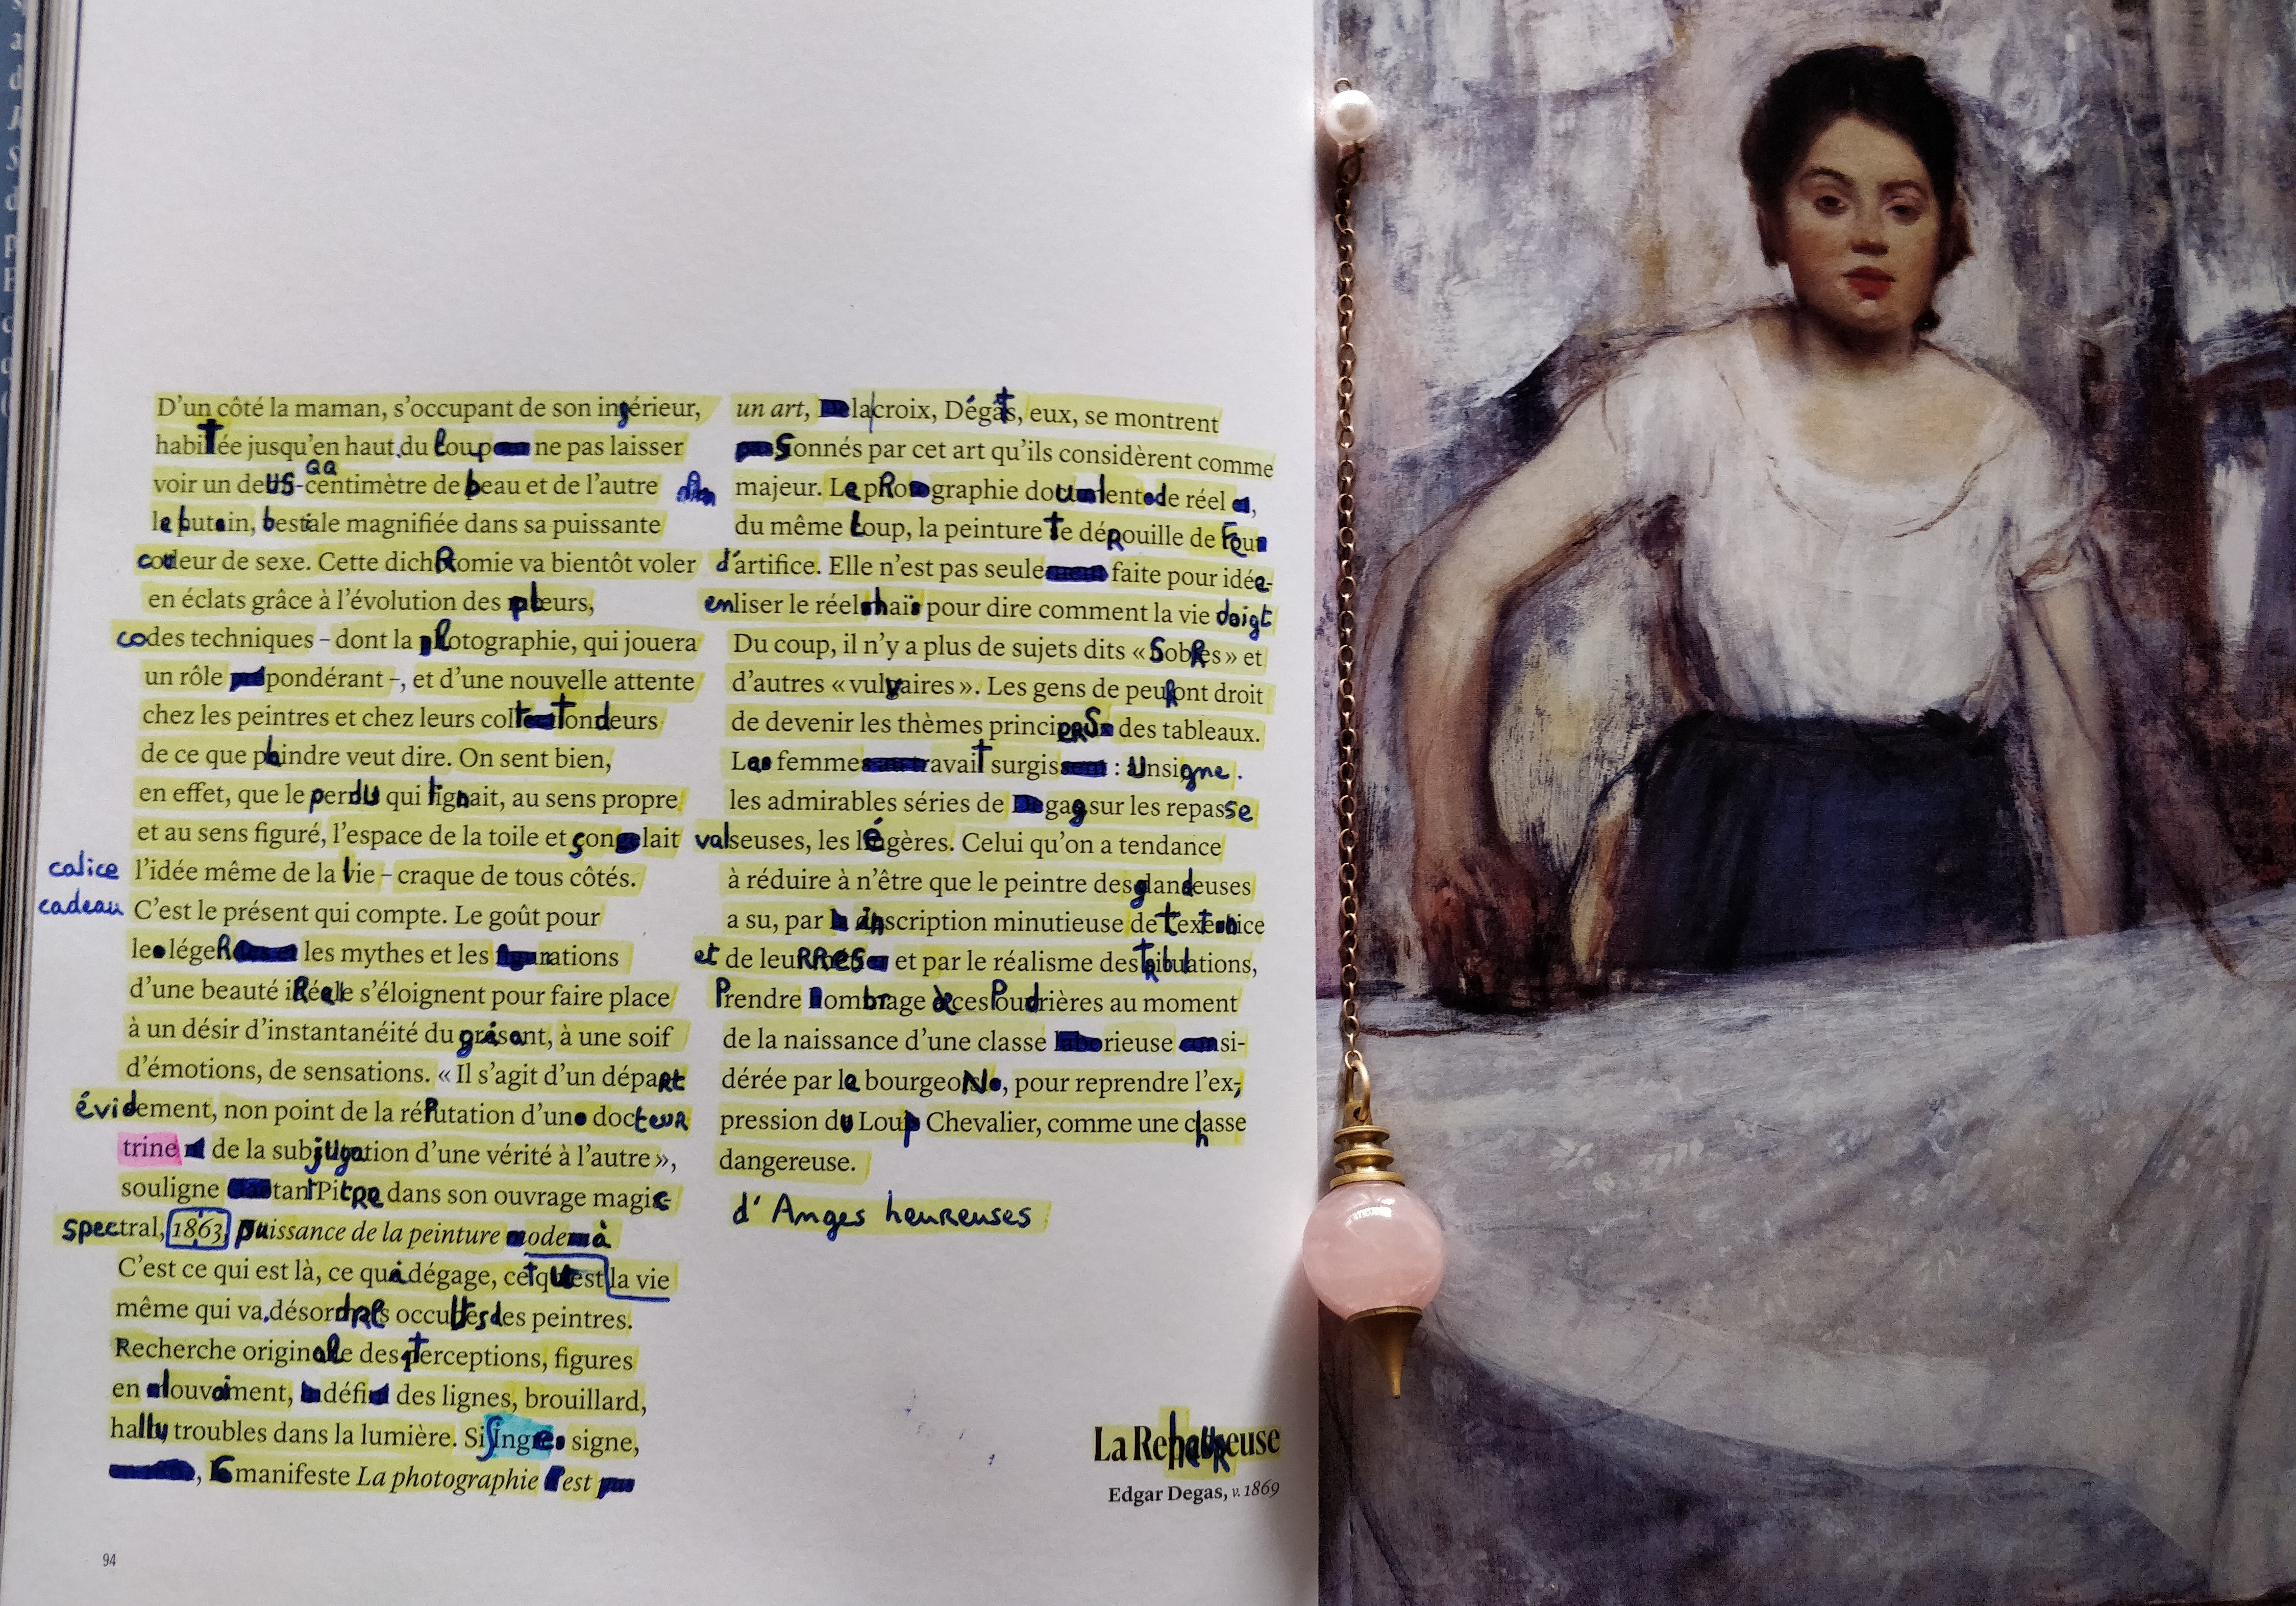 D'un côté la maman, s'occupant de son ingérieur,
habitée jusqu'en haut, du loup ne pas laisser
voir un deus-centimètre de beau et de l'autre
le butin, bestiale magnifiée dans sa puissante
couleur de sexe. Cette dichRomie va bientôt voler
en éclats grâce à l'évolution des pleurs,
codes techniques – dont la photographie, qui jouera
un rôle pondérant –, et d'une nouvelle attente
chez les peintres et chez leurs
de ce que peindre veut dire. On sent bien,
en effet, que le perdu qui lignait, au sens propre
et au sens figuré, l'espace de la toile et lait
calice l'idée même de la vie – craque de tous côtés.
cadeau C'est le présent qui compte. Le goût pour
le légeR les mythes et les rations
d'une beauté iRéelle s'éloignent pour faire place
à un désir d'instantanéité du grésant, à une soif
d'émotions, de sensations. « Il s'agit d'un dépaRt
évidement, non point de la réPutation d'un docteuR
trine de la subjugation d'une vérité à l'autre »,
souligne tant PitRe dans son ouvrage magis
spectral, 1863, puissance de la peinture mode à
C'est ce qui est là, ce qui dégage, cet qui est la vie
même qui va, désordRes occultes des peintres.
Recherche originale des perceptions, figures
en mouvement, défi des lignes, brouillard,
hallu troubles dans la lumière. Si singe signe,
manifeste La photographie est
un art, lacroix, Dégâts, eux, se montrent
Sionnés par cet art qu'ils considèrent comme
majeur. La graphie de réel,
du même Loup, la peinture te dépouille de
d'artifice. Elle n'est pas seule faite pour idée-
enliser le réel haïs pour dire comment la vie doigt
Du coup, il n'y a plus de sujets dits « SobRes » et
d'autres « vulvaires ». Les gens de peu font droit
de devenir les thèmes princi des tableaux.
La femme avait surgis : Unsigne.
les admirables séries de gag sur les repasse
valseuses, les légères. Celui qu'on a tendance
à réduire à n'être que le peintre des glandeuses
a su, par inscription minutieuse de
et de leuRRes et par le réalisme des tRibulations,
Prendre nombrage de ces Poudrières au moment
de la naissance d'une classe rieuse si-
dérée par le bourgeoN, pour reprendre l'ex-
pression du Loup Chevalier, comme une chasse
dangereuse.
d'Anges heureuses
La ReheuReuse
Edgar Degas, v. 1869
94